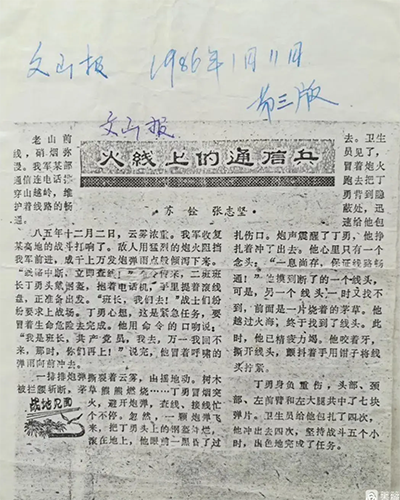 文山报 1986年1月11日
第三版
文山报
火线上的通信兵
苏铨 张志坚
老山前
线，硝烟弥
漫。我军某部
通信连电话班
穿山越岭，维
护着线路的畅
通。
八五年十二月二日，云雾浓重。我军收复
某高地的战斗打响了。敌人用猛烈的炮火阻挡
我军前进，成千上万发炮弹雨点般倾泻下来。
“线路中断，立即查线！”
二班班
长丁勇头戴钢盔，抱着电话机，手里提着滚线
盘，正准备出发。“班长，我们去！”战士们纷
纷要求上战场。丁勇心想，这是紧急任务，要
冒着生命危险去完成。他用命令的口吻说：
“我是班长，共产党员，我去，万一我回不
来，那时，你们再上！”说完，他冒着呼啸的
弹雨向前冲去。
一排排炮弹撕裂着云雾，山摇地动。树木
被拦腰斩断。茅草熊熊燃烧……丁勇冒烟突
火，避开炮弹，查线、接线忙
个不停。忽然，一颗炮弹飞
来，把丁勇头上的钢盔炸烂，
滚在地上，他眼前一黑昏了过
战地见闻
去。卫生
员见了，
冒着炮火
跑去把丁
勇背到隐
蔽处，迅
速给他包
扎伤口。炮声震醒了丁勇，他挣
扎着冲了出去。他心里只有一个
念头：“一息尚存，保证线路畅
通！”他摸到断了的一个线头，
可是，另一个线头一时又找不
到，前面是一片烧着的茅草。他
越过火海，终于找到了线头。此
时，他已精疲力竭。他咬着牙，
撕开线头，颤抖着手用钳子将线
头拧紧。
丁勇身负重伤，头部、颈
部、左前臂和左大腿共中了七块
弹片。卫生员给他包扎了四次，
他冲出去四次，坚持战斗五个小
时，出色地完成了任务。